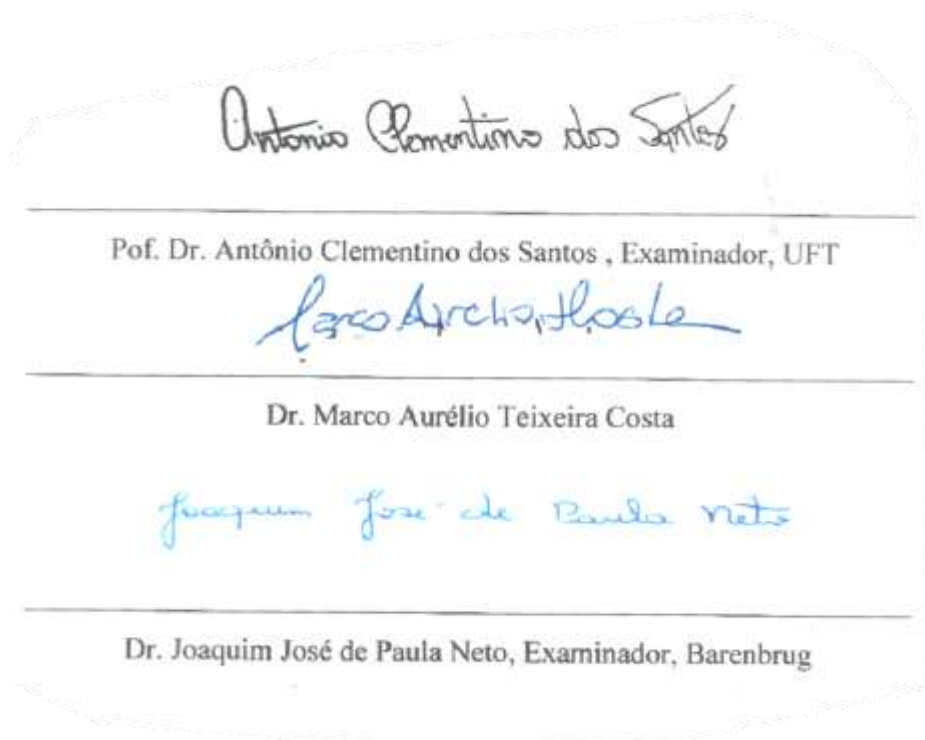 Antonio Clementino dos Santos
Pof. Dr. Antônio Clementino dos Santos , Examinador, UFT
Marco Aurelio T Costa
Dr. Marco Aurélio Teixeira Costa
Joaquim José de Paula Neto
Dr. Joaquim José de Paula Neto, Examinador, Barenbrug